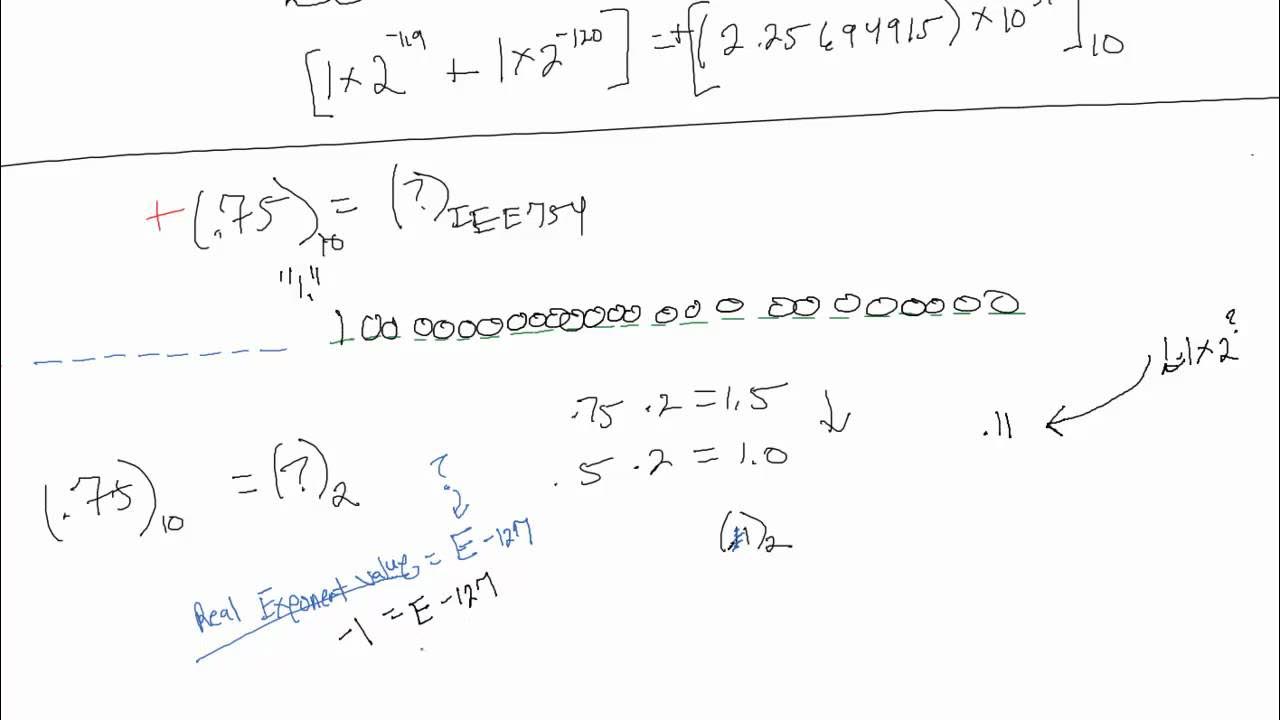 [1×2^-119 + 1×2^-120] = +[(2.25694915)×10 ]10
+(.75)10 = (?)IEEE754
"1."
1 0 0 0 0 0 0 0 0 0 0 0 0 0 0 0 0 0 0 0 0 0 0
1.1×2^?
.75 .2 = 1.5
.11
.5 .2 = 1.0
(.75)10 = (?)2
?
Real Exponent value = E -127
-1 = E -127